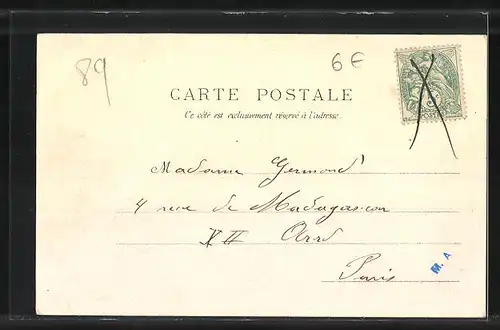 89
6€
CARTE POSTALE
Ce côté est exclusivement réservé à l'adresse.
Madame Germond
4 rue de Madagascar
XII Arrd
Paris
M. A